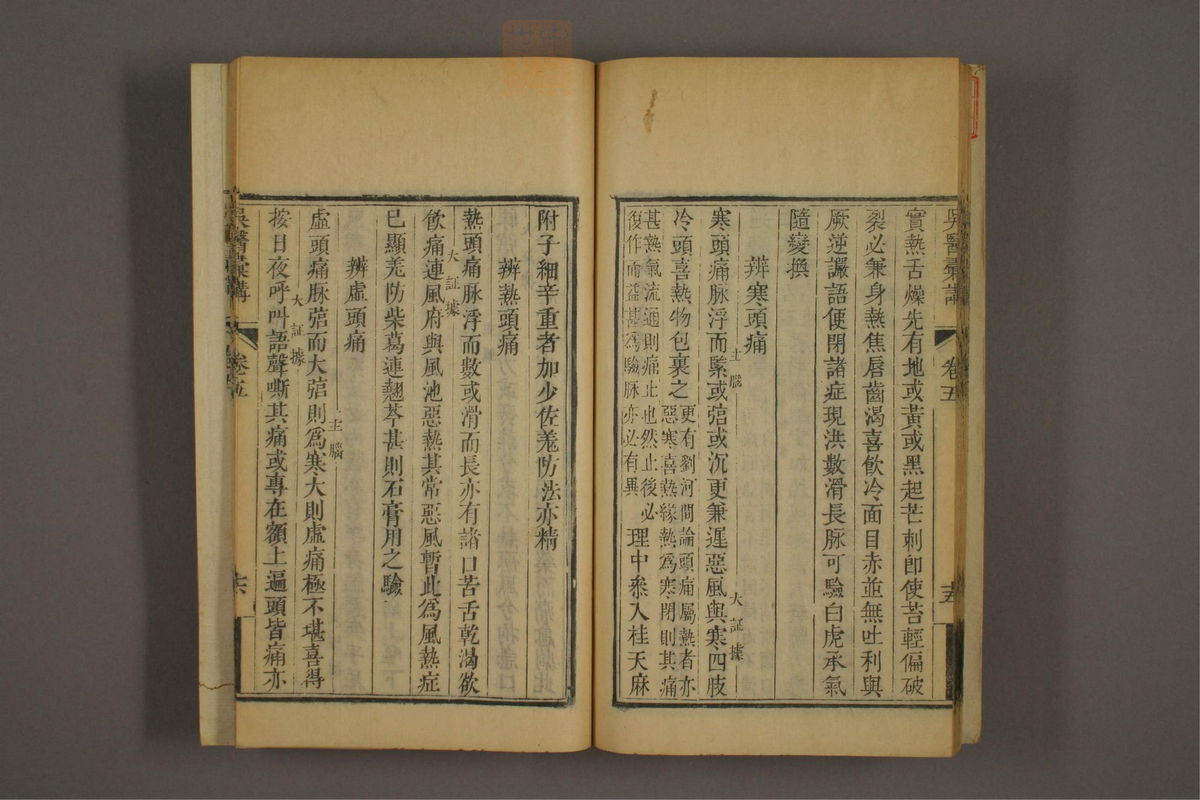 吳醫彙講
卷五
實熱舌燥先有地或黃或黑起芒刺卽使苔輕偏破
裂必兼身熱焦唇齒渴喜飲冷面目赤並無吐利與
厥逆讝語便閉諸症現洪數滑長脈可驗白虎承氣
隨變換
辨寒頭痛
主腦
大証據
寒頭痛脉浮而緊或弦或沉更兼遲惡風與寒四肢
冷頭喜熱物包裹之
更有劉河間論頭痛屬熱者亦
惡寒喜熱緣熱爲寒閉則其痛
甚熱氣流通則痛止也然止後必
復作而益甚爲驗脉亦必有異
理中參入桂天麻
附子細辛重者加少佐羌防法亦精
辨熱頭痛
熱頭痛脉浮而數或滑而長亦有諸口苦舌乾渴欲
大証據
飲痛連風府與風池惡熱其常惡風暫此爲風熱症
已顯羌防柴葛連翹芩甚則石膏用之驗
辨虛頭痛
主腦
虛頭痛脉弦而大弦則爲寒大則虛痛極不堪喜得
大証據
按日夜呼叫語聲嘶其痛或專在額上遍頭皆痛亦
吳醫彙講
卷五
六